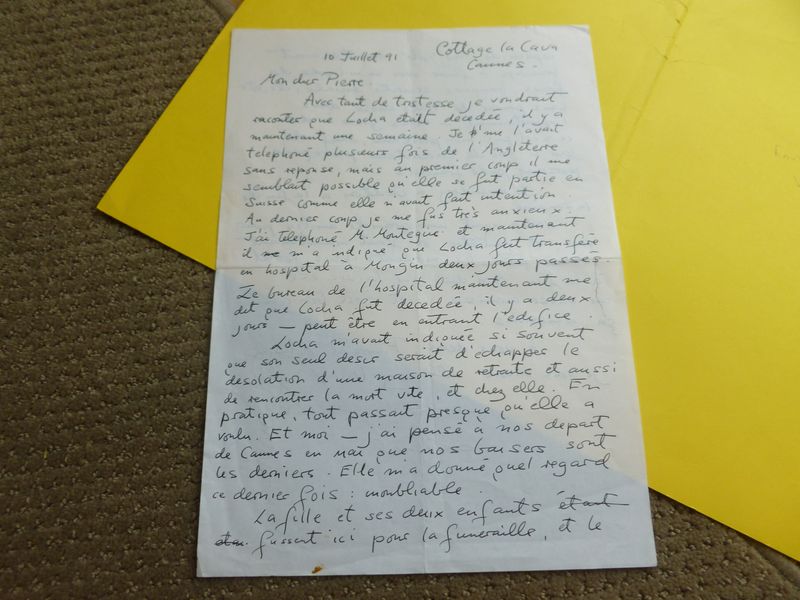 10 Juillet 91
Cottage la Cava
Cannes.
Mon cher Pierre
Avec tant de tristesse je voudrait
raconter que Locha était décedée, il y a
maintenant une semaine. Je l'avait
telephoné plusieurs fois de l'Angleterre
sans reponse, mais au premier coup il me
semblait possible qu'elle se fut partie en
Suisse comme elle n'avait fait intention.
Au dernier coup je me fus très anxieux.
J'ai telephoné M. Montegue et maintenant
il m'a indiqué que Locha fut transféré
en hospital à Mongin deux jours passés
Le bureau de l'hospital maintenant me
dit que Locha fut decedée, il y a deux
jours — peut être en entrant l'edifice.
Locha m'avait indiquée si souvent
que son seul desir serait d'echapper le
desolation d'une maison de retraite et aussi
de rencontrer la mort vite, et chez elle. En
pratique, tout passait presque qu'elle a
voulu. Et moi — j'ai pensé à nos depart
de Cannes en mai que nos baisers sont
les derniers. Elle m'a donné quel regard
ce dernier fois : inoubliable.
La fille et ses deux enfants étant
fussent ici pour la funeraille, et le